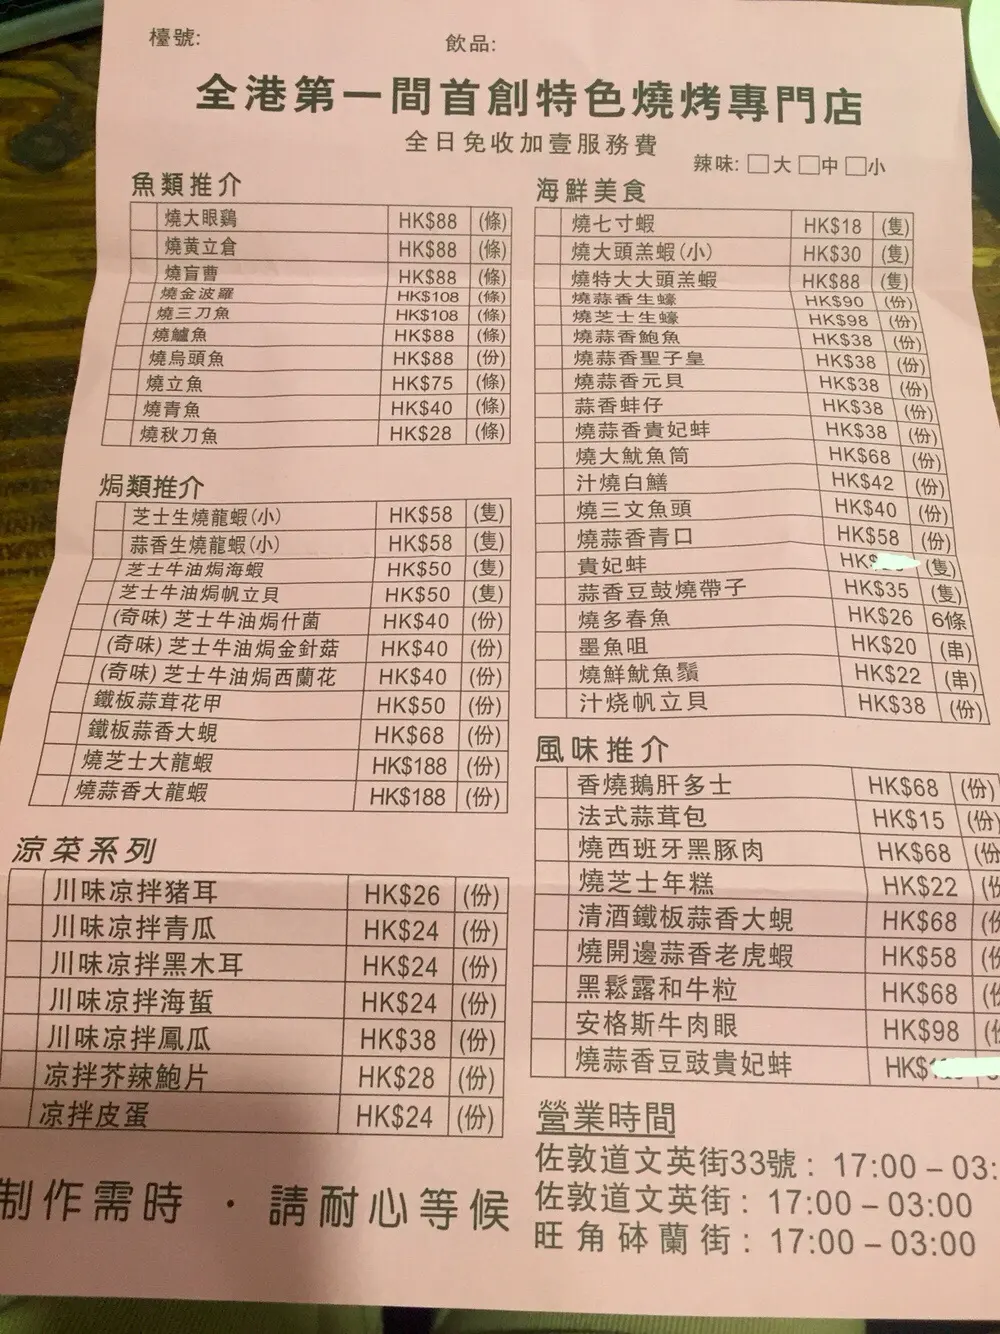 檯號:
飲品:
全港第一間首創特色燒烤專門店
全日免收加壹服務費
辣味: □大 □中 □小
魚類推介
燒大眼鷄 HK$88 (條)
燒黄立倉 HK$88 (條)
燒盲曹 HK$88 (條)
燒金波羅 HK$108 (條)
燒三刀魚 HK$108 (條)
燒鱸魚 HK$88 (條)
燒烏頭魚 HK$88 (份)
燒立魚 HK$75 (條)
燒青魚 HK$40 (條)
燒秋刀魚 HK$28 (條)
焗類推介
芝士生燒龍蝦(小) HK$58 (隻)
蒜香生燒龍蝦(小) HK$58 (隻)
芝士牛油焗海蝦 HK$50 (隻)
芝士牛油焗帆立貝 HK$50 (隻)
(奇味) 芝士牛油焗什菌 HK$40 (份)
(奇味) 芝士牛油焗金針菇 HK$40 (份)
(奇味) 芝士牛油焗西蘭花 HK$40 (份)
鐵板蒜茸花甲 HK$50 (份)
鐵板蒜香大蜆 HK$68 (份)
燒芝士大龍蝦 HK$188 (份)
燒蒜香大龍蝦 HK$188 (份)
凉菜系列
川味凉拌猪耳 HK$26 (份)
川味凉拌青瓜 HK$24 (份)
川味凉拌黑木耳 HK$24 (份)
川味凉拌海蜇 HK$24 (份)
川味凉拌鳳瓜 HK$38 (份)
凉拌芥辣鮑片 HK$28 (份)
凉拌皮蛋 HK$24 (份)
制作需時 · 請耐心等候
海鮮美食
燒七寸蝦 HK$18 (隻)
燒大頭羔蝦(小) HK$30 (隻)
燒特大大頭羔蝦 HK$88 (隻)
燒蒜香生蠔 HK$90 (份)
燒芝士生蠔 HK$98 (份)
燒蒜香鮑魚 HK$38 (份)
燒蒜香聖子皇 HK$38 (份)
燒蒜香元貝 HK$38 (份)
蒜香蚌仔 HK$38 (份)
燒蒜香貴妃蚌 HK$38 (份)
燒大魷魚筒 HK$68 (份)
汁燒白鱔 HK$42 (份)
燒三文魚頭 HK$40 (份)
燒蒜香青口 HK$58 (份)
貴妃蚌 HK$ (隻)
蒜香豆鼓燒帶子 HK$35 (隻)
燒多春魚 HK$26 6條
墨魚咀 HK$20 (串)
燒鮮魷魚鬚 HK$22 (串)
汁烧帆立貝 HK$38 (份)
風味推介
香燒鵝肝多士 HK$68 (份)
法式蒜茸包 HK$15 (份)
燒西班牙黑豚肉 HK$68 (份
燒芝士年糕 HK$22 (份
清酒鐵板蒜香大蜆 HK$68 (份
燒開邊蒜香老虎蝦 HK$58 (份
黑鬆露和牛粒 HK$68 (份
安格斯牛肉眼 HK$98 (份
燒蒜香豆豉貴妃蚌 HK$
營業時間
佐敦道文英街33號 : 17:00 – 03:
佐敦道文英街 : 17:00 – 03:00
旺角砵蘭街 : 17:00 – 03:00